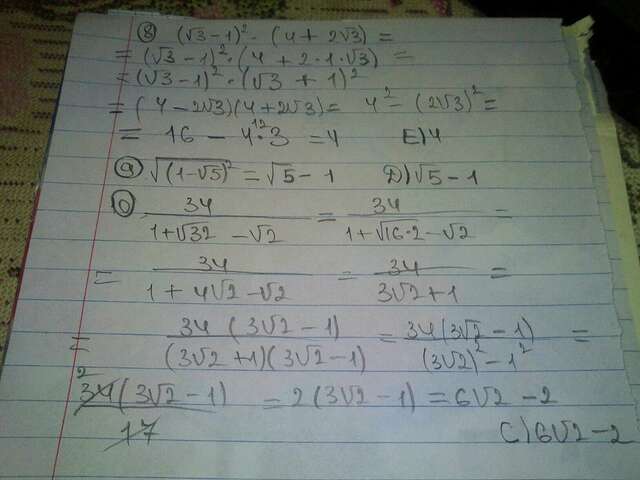 ⑧ (√3-1)² · (4+2√3) =
= (√3-1)² · (4+2·1·√3) =
= (√3-1)² · (√3+1)²
= (4-2√3)(4+2√3) = 4² - (2√3)² =
= 16 - 4·3 12 = 4 E)4
⑨ √(1-√5)² = √5-1 D)√5-1
⑩ 34/(1+√32-√2) = 34/(1+√16·2-√2) =
= 34/(1+4√2-√2) = 34/(3√2+1) =
= 34(3√2-1)/(3√2+1)(3√2-1) = 34(3√2-1)/((3√2)²-1²) =
2 34(3√2-1)/17 = 2(3√2-1) = 6√2-2
C)6√2-2